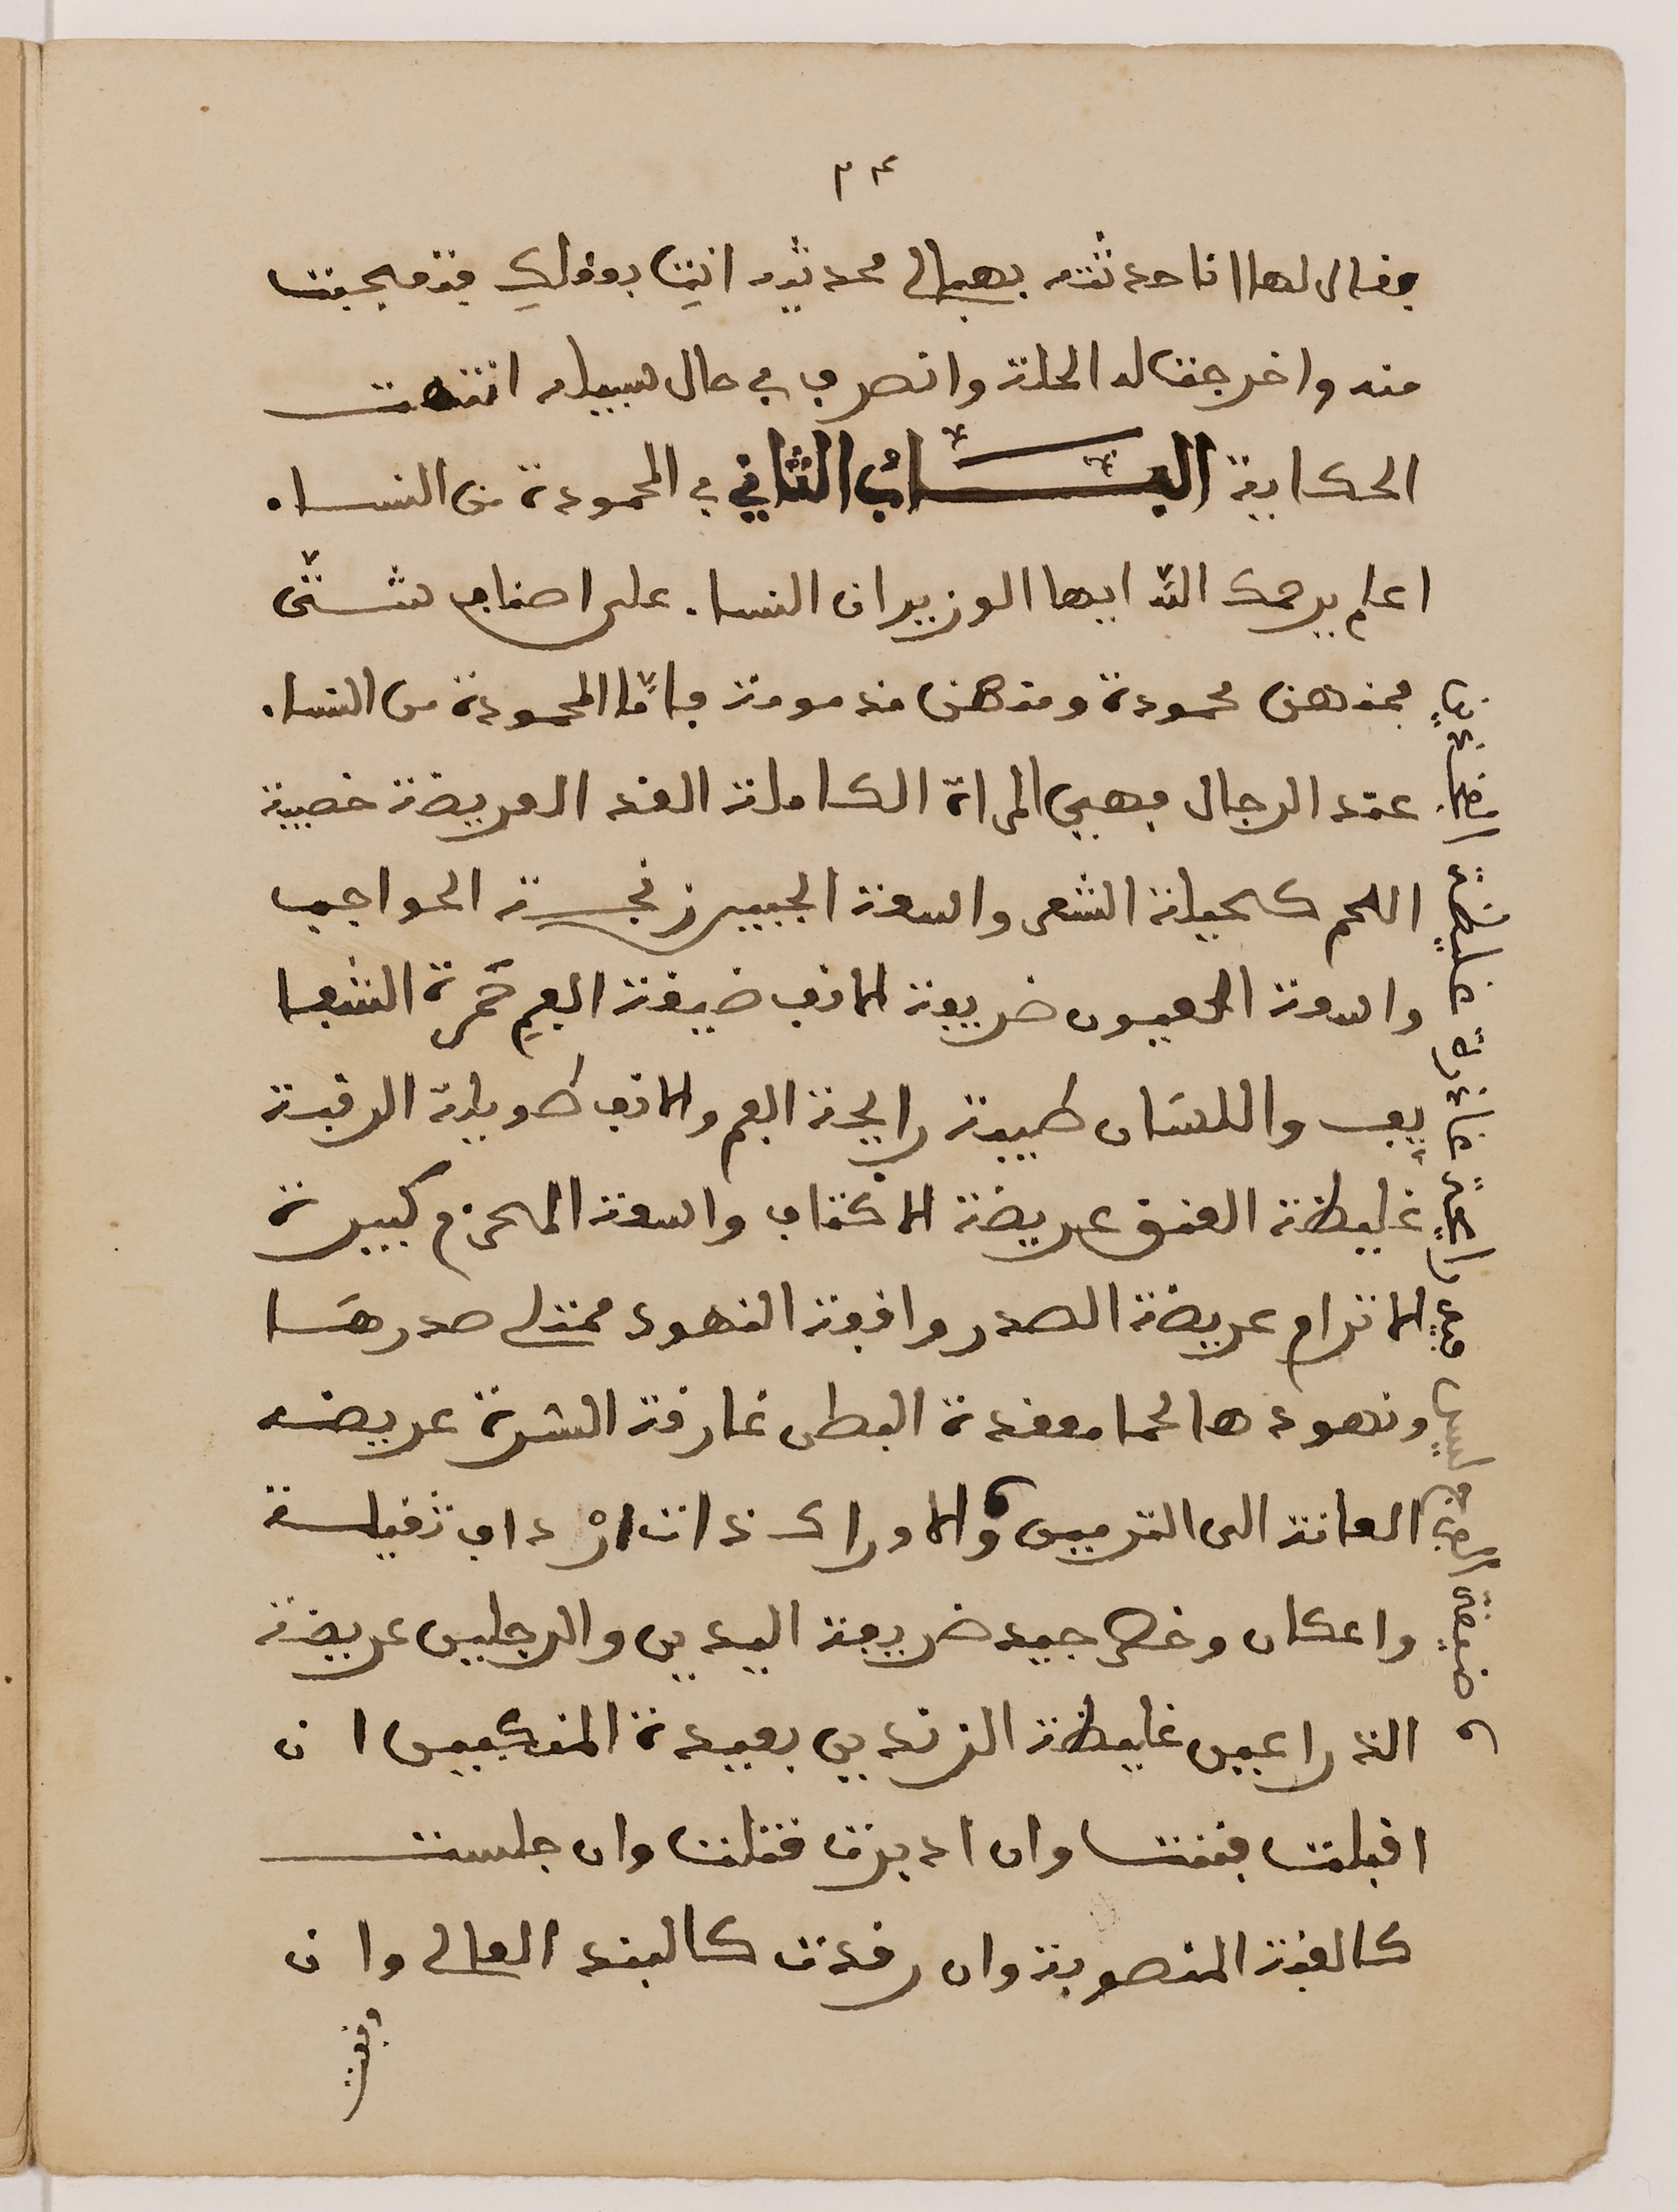 ٢٤
فقال لها انا حدثته بهبالي محدثيه انتِ بعقلكِ فتعجبت
منه واخرجت له الحلة وانصرف في حال سبيله انتهت
الحكاية البَابُ الثاني في المحمودة من النساء
اعلم يرحمك الله ايها الوزير ان النساء على اصناف شتّى
فمنهن محمودة ومنهن مذمومة فامّا المحمودة من النساء
عند الرجال فهي المراة الكاملة القد العريضة خصيبة
اللحم كحيلة الشعر واسعة الجبين زنجة الحواجب
واسعة العيون ظريفة الانف ضيقة الفمِ حَمرة الشفا
يف واللسَان طيبة رايحة الفم والانف طويلة الرقبة
غليظة العنق عريضة الاكتاف واسعة المحزم كبيرة
عريضة الصدر واقفة النهود ممتلي صدرهَا
ونهودها لحما معقدة البطن غارقة السرة عريضه
العانة الى الترمين والاوراك ذات ارْداف ثقيلة
واعكان وخصر جيد ظريفة اليدين والرجلين عريضة
الذراعين غليظة الزندين بعيدة المنكبين ان
اقبلت فتنت وان ادبرت قتلت وان جلست
كالقبة المنصوبة وان رقدت كالبند العالي وان
وقفت